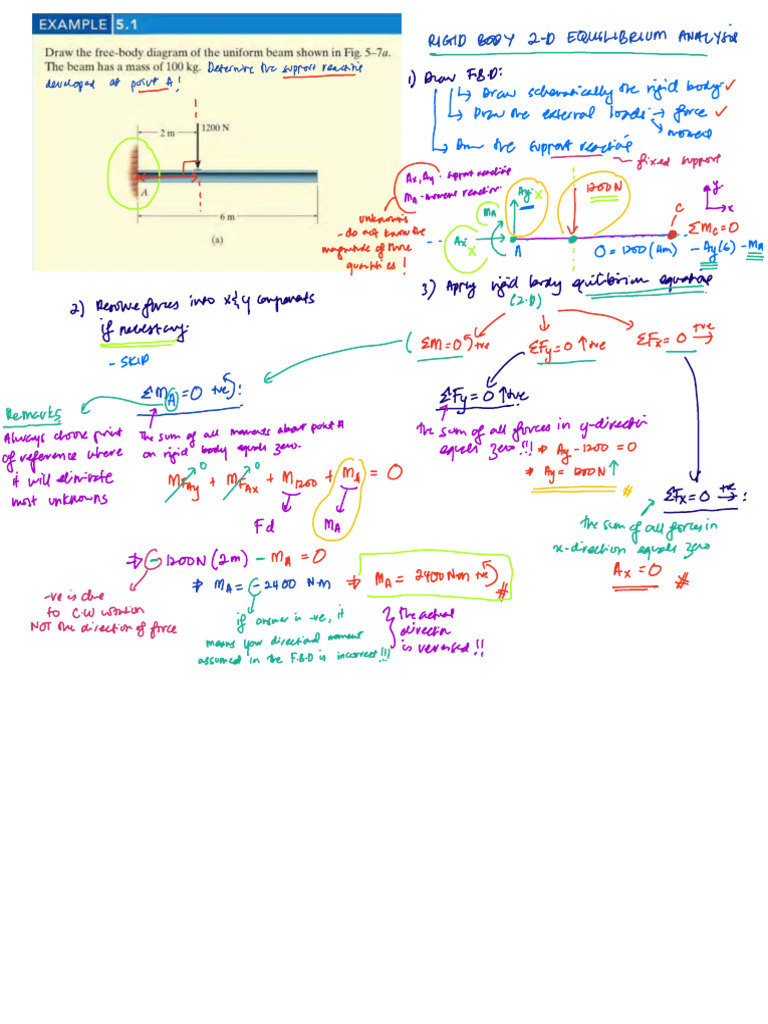 EXAMPLE 5.1
Draw the free-body diagram of the uniform beam shown in Fig. 5–7a.
The beam has a mass of 100 kg. Determine the support reactions
developed at point A!
1200 N
2 m
A
6 m
(a)
RIGID BODY 2-D EQUILIBRIUM ANALYSIS
1) Draw F.B.D:
↳ Draw schematically the rigid body ✓
↳ Draw the external loads → force ✓
↘ moment
↳ Draw the support reactions
fixed support
Ax, Ay: support reactions
MA - moment reaction
unknowns
- do not know the
magnitude of these
quantities!
MA
Ay x
1200N
Ax x
A
C
y
x
ΣMc=0
0 = 1200(4m) - Ay(6) - MA
2) Resolve forces into x & y components
if necessary.
- SKIP
3) Apply rigid body equilibrium equations
(2-D)
(ΣM=0 ↺ +ve
ΣFy=0 ↑ +ve
ΣFx=0 → +ve
ΣMA=0 +ve ↺:
Remarks
Always choose point
of reference where
it will eliminate
most unknowns
The sum of all moments about point A
on rigid body equals zero.
MFAy 0 + MFAx 0 + M1200 + MA = 0
Fd
MA
⇒ - 1200N (2m) - MA = 0
⇒ MA = - 2400 N·m ⇒ MA = 2400 N·m +ve ↺ #
-ve is due
to C.W rotation
NOT the direction of force
if answer is -ve, it
means your directional moment
assumed in the F.B.D is incorrect!!!
The actual
direction
is reversed!!
ΣFy=0 ↑+ve
The sum of all forces in y-direction
equals zero!!! ⇒ Ay - 1200 = 0
⇒ Ay = 1200N ↑ #
ΣFx=0 +ve →:
The sum of all forces in
x-direction equals zero
Ax = 0 #